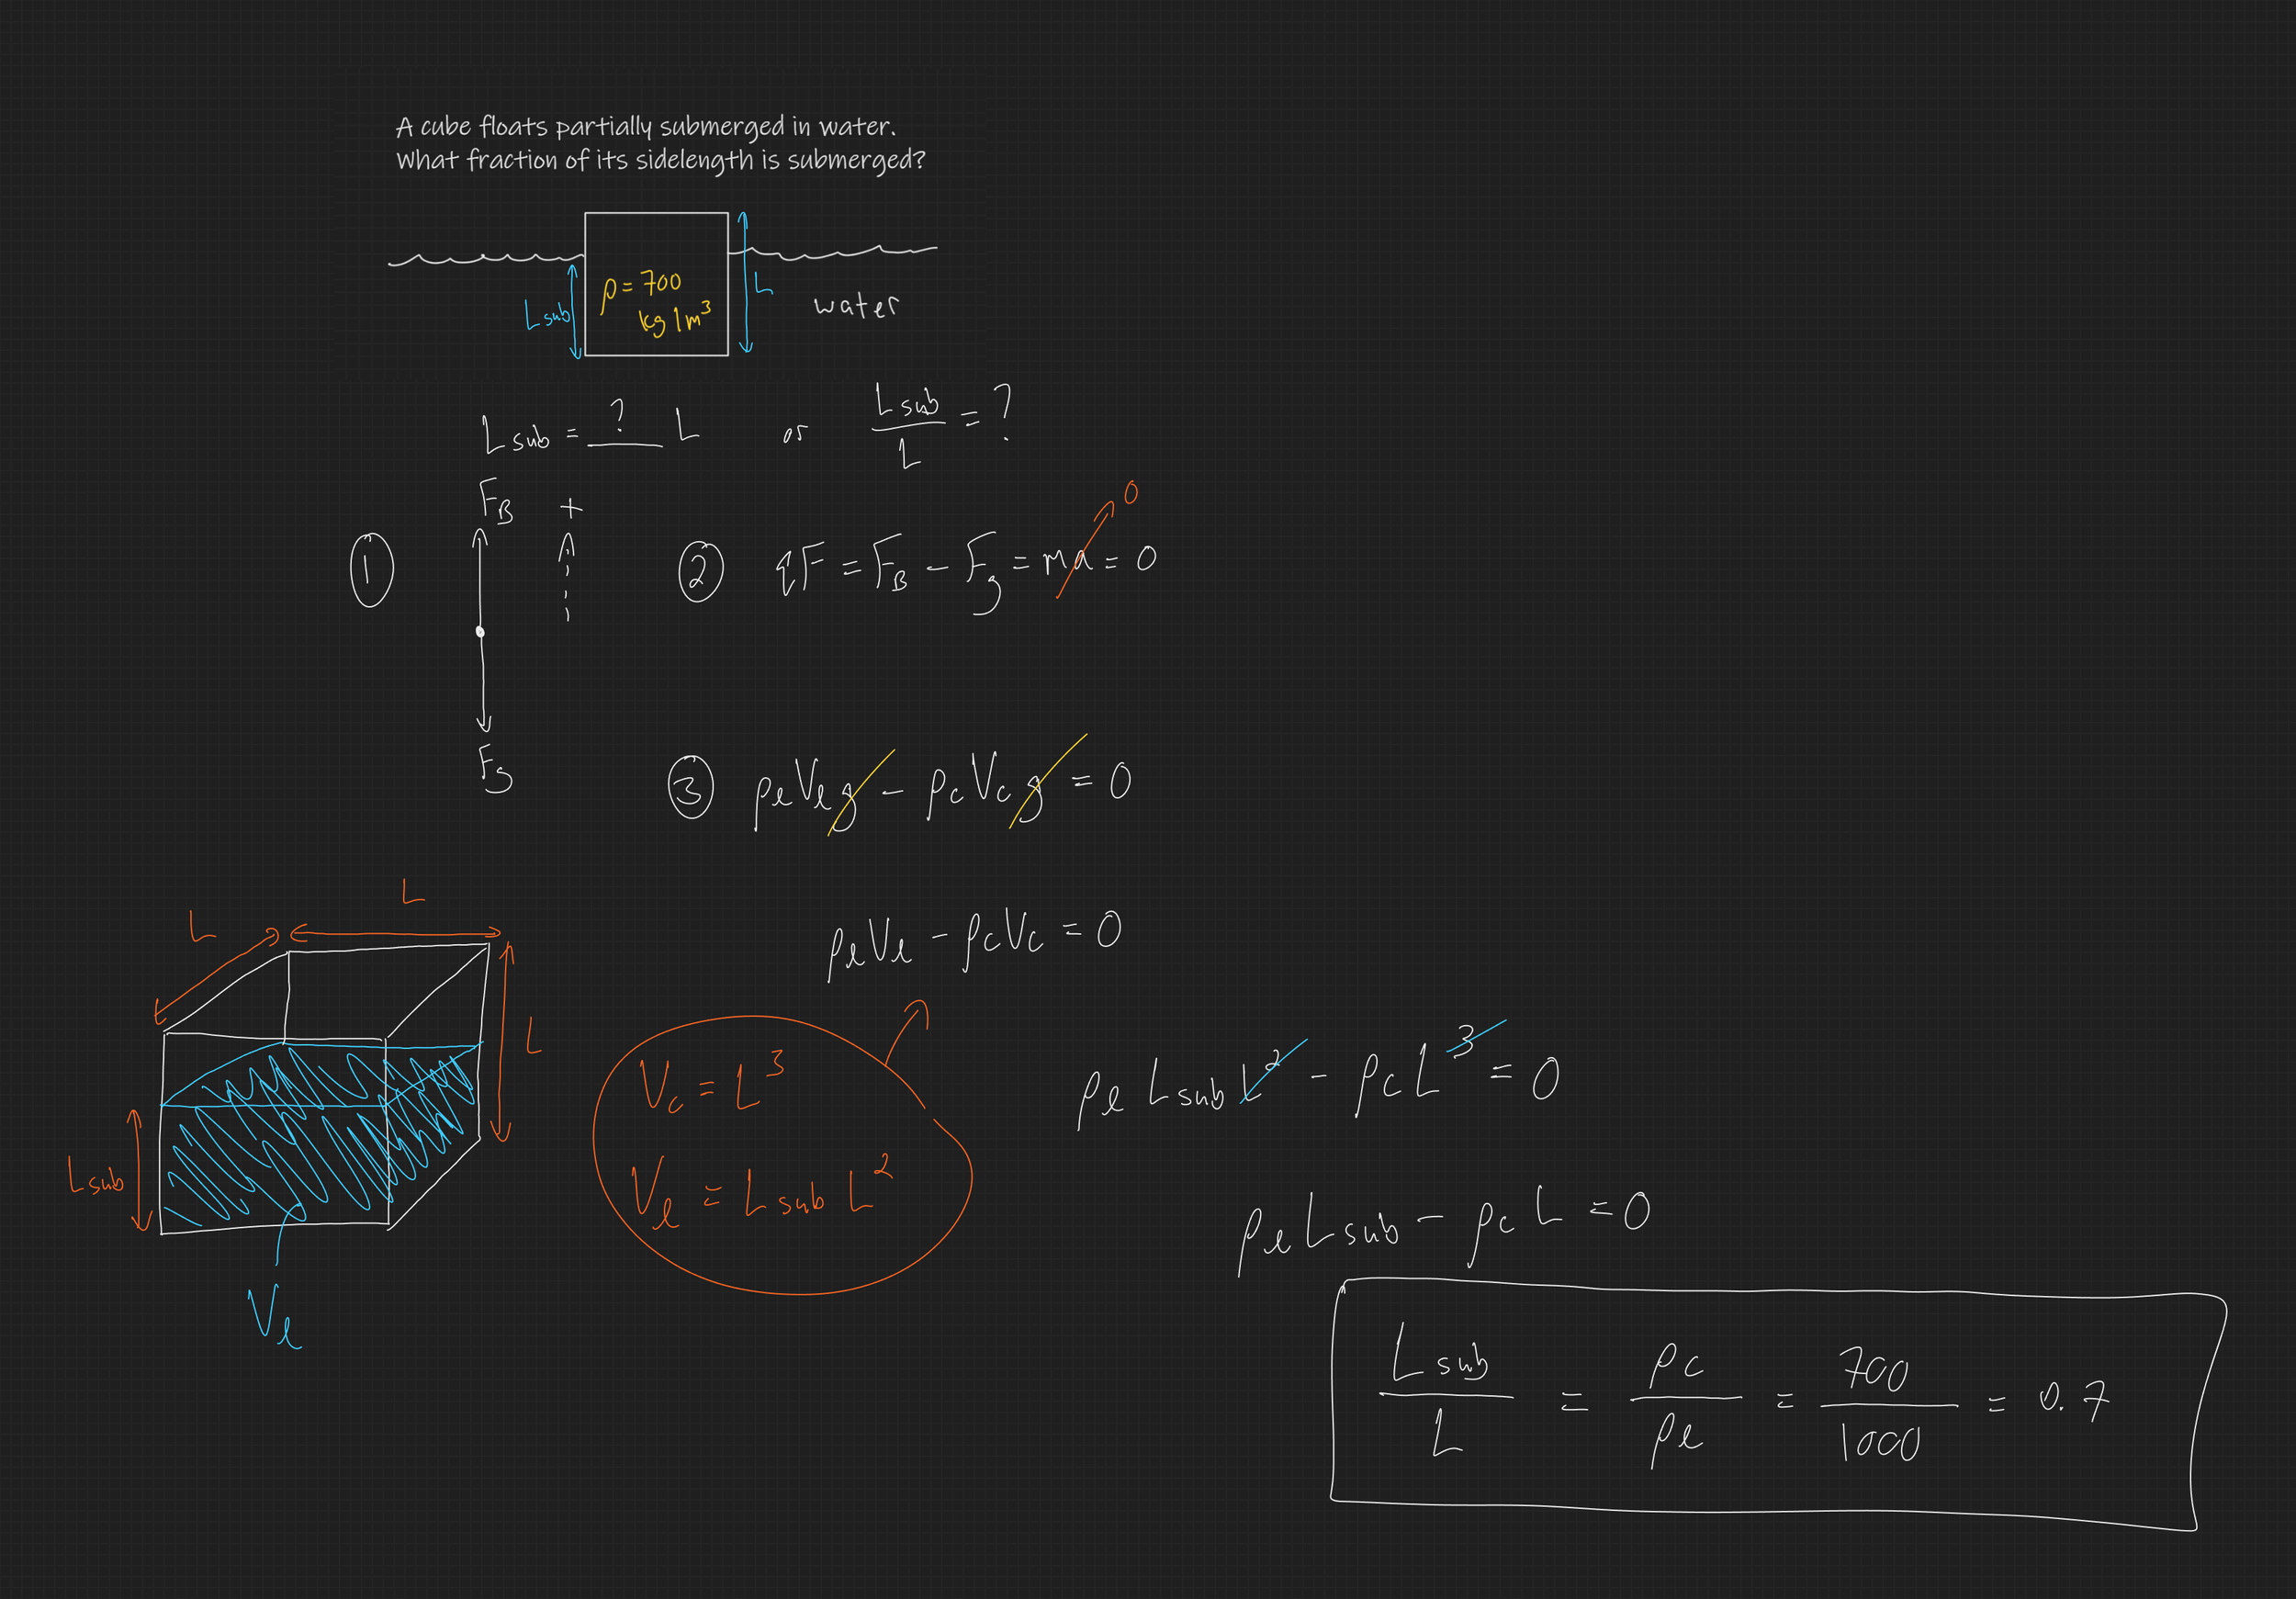 A cube floats partially submerged in water.
What fraction of its sidelength is submerged?
ρ = 700
kg/m³
L sub
L
water
L sub = ? L or L sub / L = ?
F_B +
① ② ΣF = F_B − F_g = ma = 0
0
F_g
③ ρ_ℓ V_ℓ g − ρ_c V_c g = 0
ρ_ℓ V_ℓ − ρ_c V_c = 0
L
L
L
L sub
V_ℓ
V_c = L³
V_ℓ = L sub L²
ρ_ℓ L sub L² − ρ_c L³ = 0
ρ_ℓ L sub − ρ_c L = 0
L sub / L = ρ_c / ρ_ℓ = 700 / 1000 = 0.7